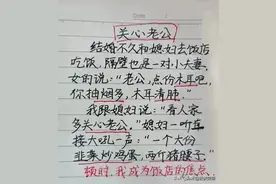 关心老公
结婚不久和媳妇去饭店
吃饭，隔壁也是一对小夫妻，
女的说：“老公，点份木耳吧，
你抽烟多，木耳清肺。”
我跟媳妇说：“看人家
多关心老公。”媳妇一听，直
接大吼一声：“一个大份
韭菜炒鸡蛋，两个猪腰子。”
顿时，我成为饭店的焦点。